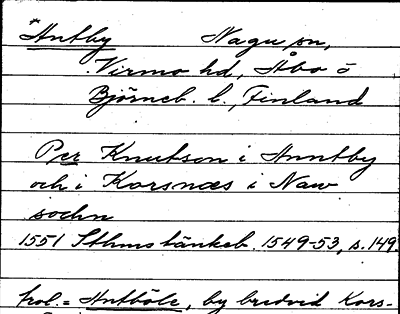 *Antby Nagu sn,
Virmo hd, Åbo o
Björneb. l., Finland
Per Knutson i Anntby
och i Korsnæs i Naw
sochn
1551 Sthms tänkeb. 1549-53, s. 149.
trol. = Antböle, by bredvid Kors-